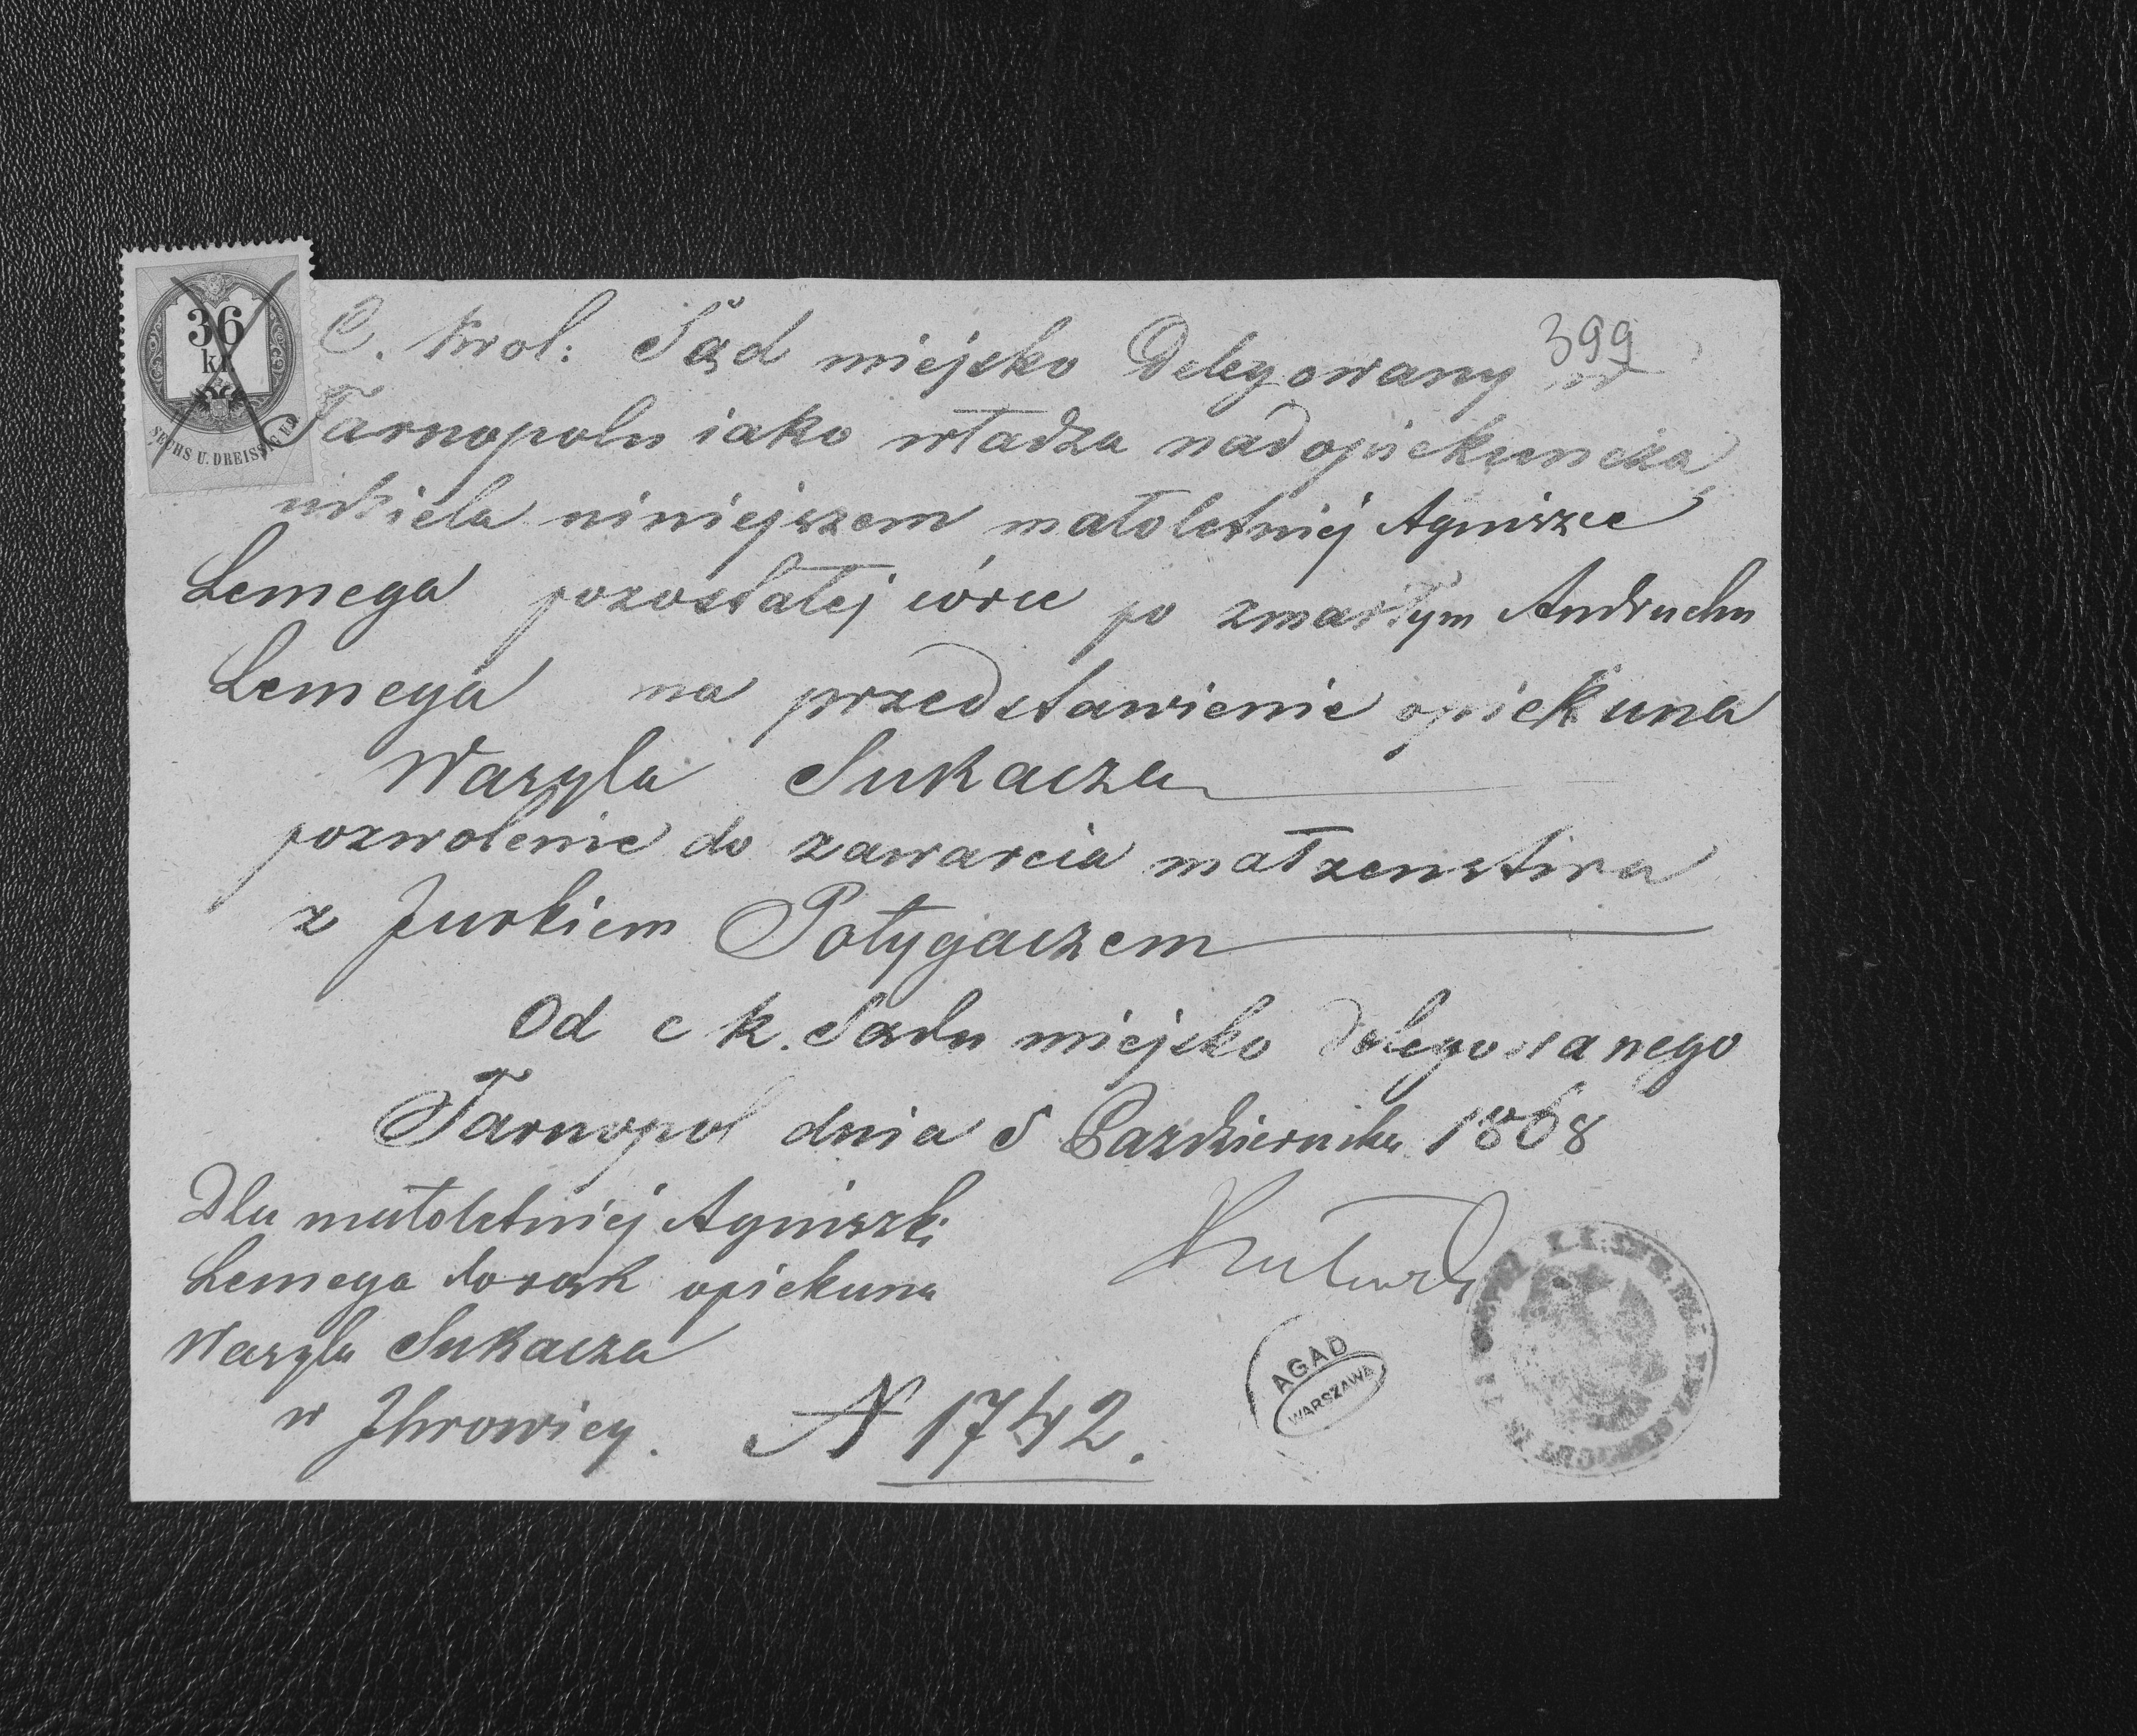 36
kr
SECHS U. DREISSIG KR
399
C. Krol: Sąd miejsko Delegowany w
Tarnopolu iako władza nadopiekuncza
udziela niniejszem małoletniej Agniszce
Lemega pozostałej córce po zmarłym Andruchu
Lemega na przedstawienie opiekuna
Wasyla Sukacza
pozwolenie do zawarcia małzenstwa
z Jurkiem Połygaczem
Od c k. Sadu miejsko delegowanego
Tarnopol dnia 5 Pazdziernika 1868
Dla małoletniej Agniszki
Lemega do rąk opiekuna
Wasyla Sukacza
w Ihrowicy.
N 1742.
AGAD
WARSZAWA